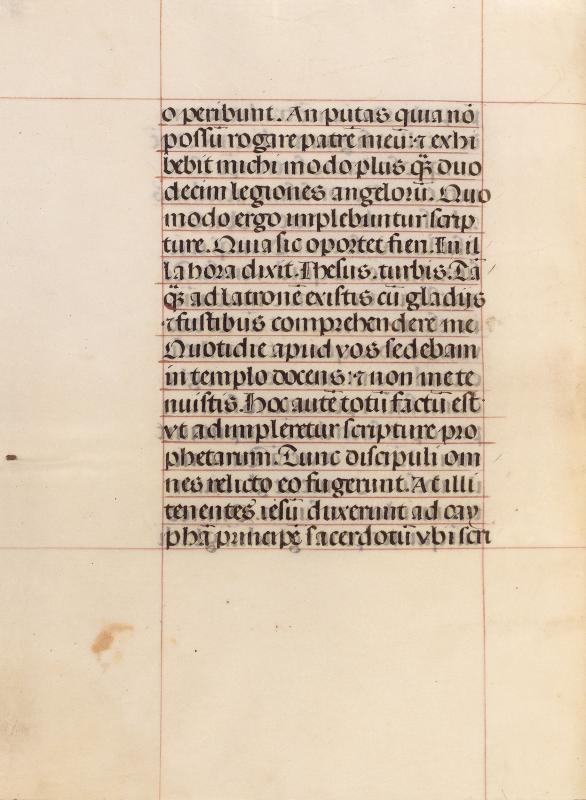 o peribunt. An putas quia nō
possū rogare patrē meū: ⁊ exhi
bebit michi modo plus q̄ȝ duo
decim legiones angelorū. Quo
modo ergo implebuntur scrip
ture. Quia sic oportet fieri. In il
la hora dixit. Ihesus. turbis. Tā
q̄ȝ ad latronē existis cū gladijs
⁊ fustibus comprehendere me
Quotidie apud vos sedebam
in templo docens: ⁊ non me te
nuistis. Hoc autē totū factū est
vt adimpleretur scripture pro
phetarum. Tunc discipuli om
nes relicto eo fugerunt. At illi
tenentes iesū duxerunt ad cay
phā principē sacerdotū vbi scri